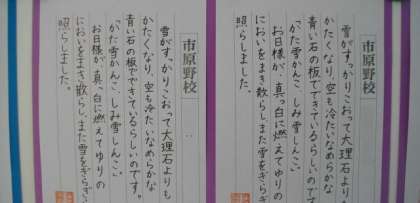 市原野校
雪がすっかりこおって大理石よりも
かたくなり、空も冷たいなめらかな
青い石の板でできているらしいのです
「かた雪かんこ、しみ雪しんこ。」
お日様が、真っ白に燃えてゆりの
においをまき散らし、また雪をぎらぎ
照らしました。
市原野校
雪がすっかりこおって大理石よりも
かたくなり、空も冷たいなめらかな
青い石の板でできているらしいのです。
「かた雪かんこ、しみ雪しんこ。」
お日様が、真っ白に燃えてゆりの
においをまき散らし、また雪をぎらぎら
照らしました。